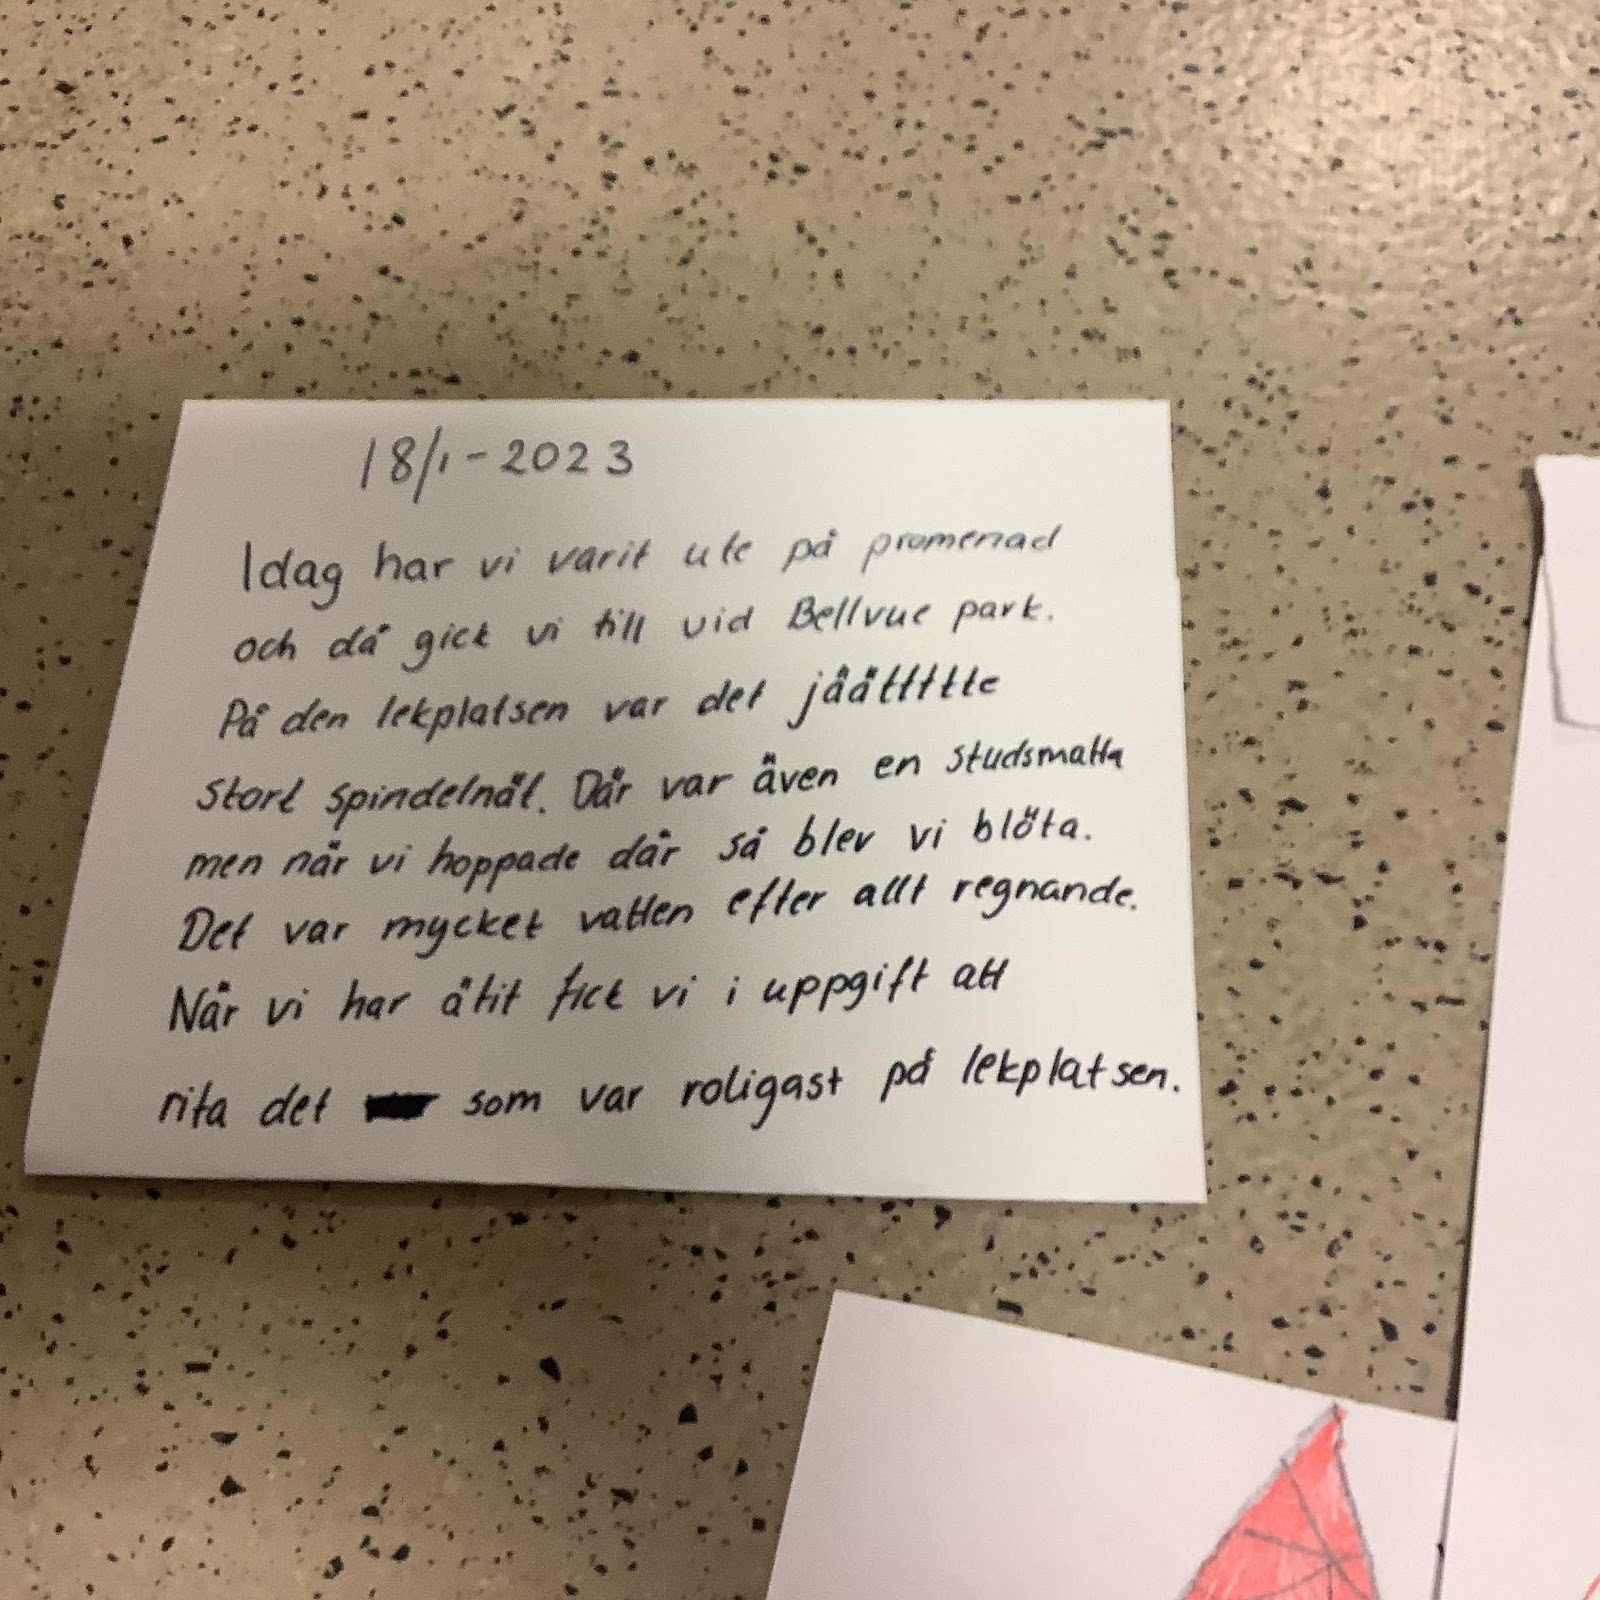 18/1-2023
Idag har vi varit ute på promenad
och då gick vi till vid Bellvue park.
På den lekplatsen var det jääättttte
stort spindelnät. Där var även en studsmatta
men när vi hoppade där så blev vi blöta.
Det var mycket vatten efter allt regnande.
När vi har ätit fick vi i uppgift att
rita det som var roligast på lekplatsen.